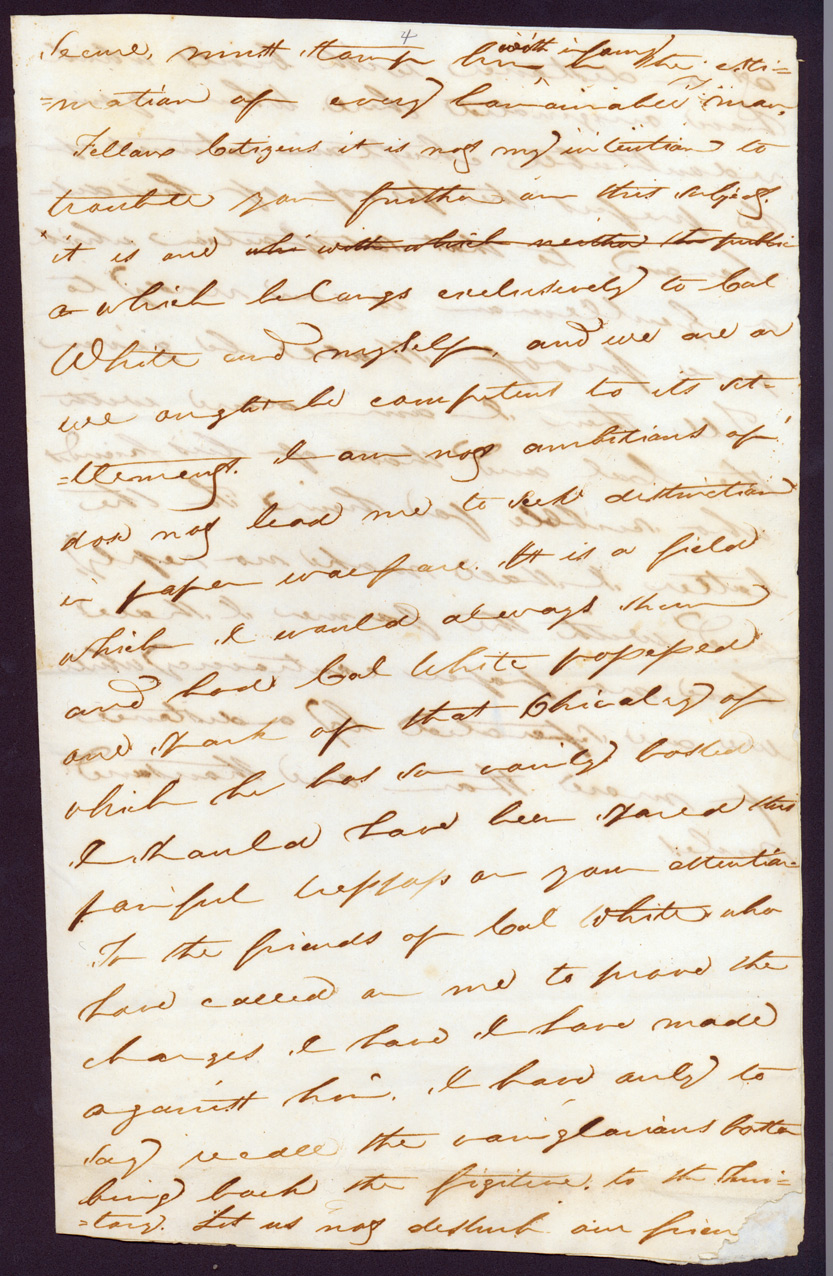 4
Secure, must stamp him with infamy in the esti=
=mation of every honourable man.
Fellow Citizens it is not my intention to
trouble you further on this subject.
it is one whi with which neither the public
a which belongs exclusively to Col
White and myself, and we are or
we ought be competent to its set-
=tlement. I am not ambitious of
dose not lead me to seek distinction
in paper warfare. It is a field
which I would always shun
and had Col White possessed
one spark of that Chivalry of
which he has so vainly bosted
I should have been spared this
painful trespass on your attention
To the friends of Col White who
have called on me to prove the
charges I have I have made
against him. I have only to
say recall the vainglorious boster
bring back the figitive. to the Terri=
=tory. Let us not disturb our frien